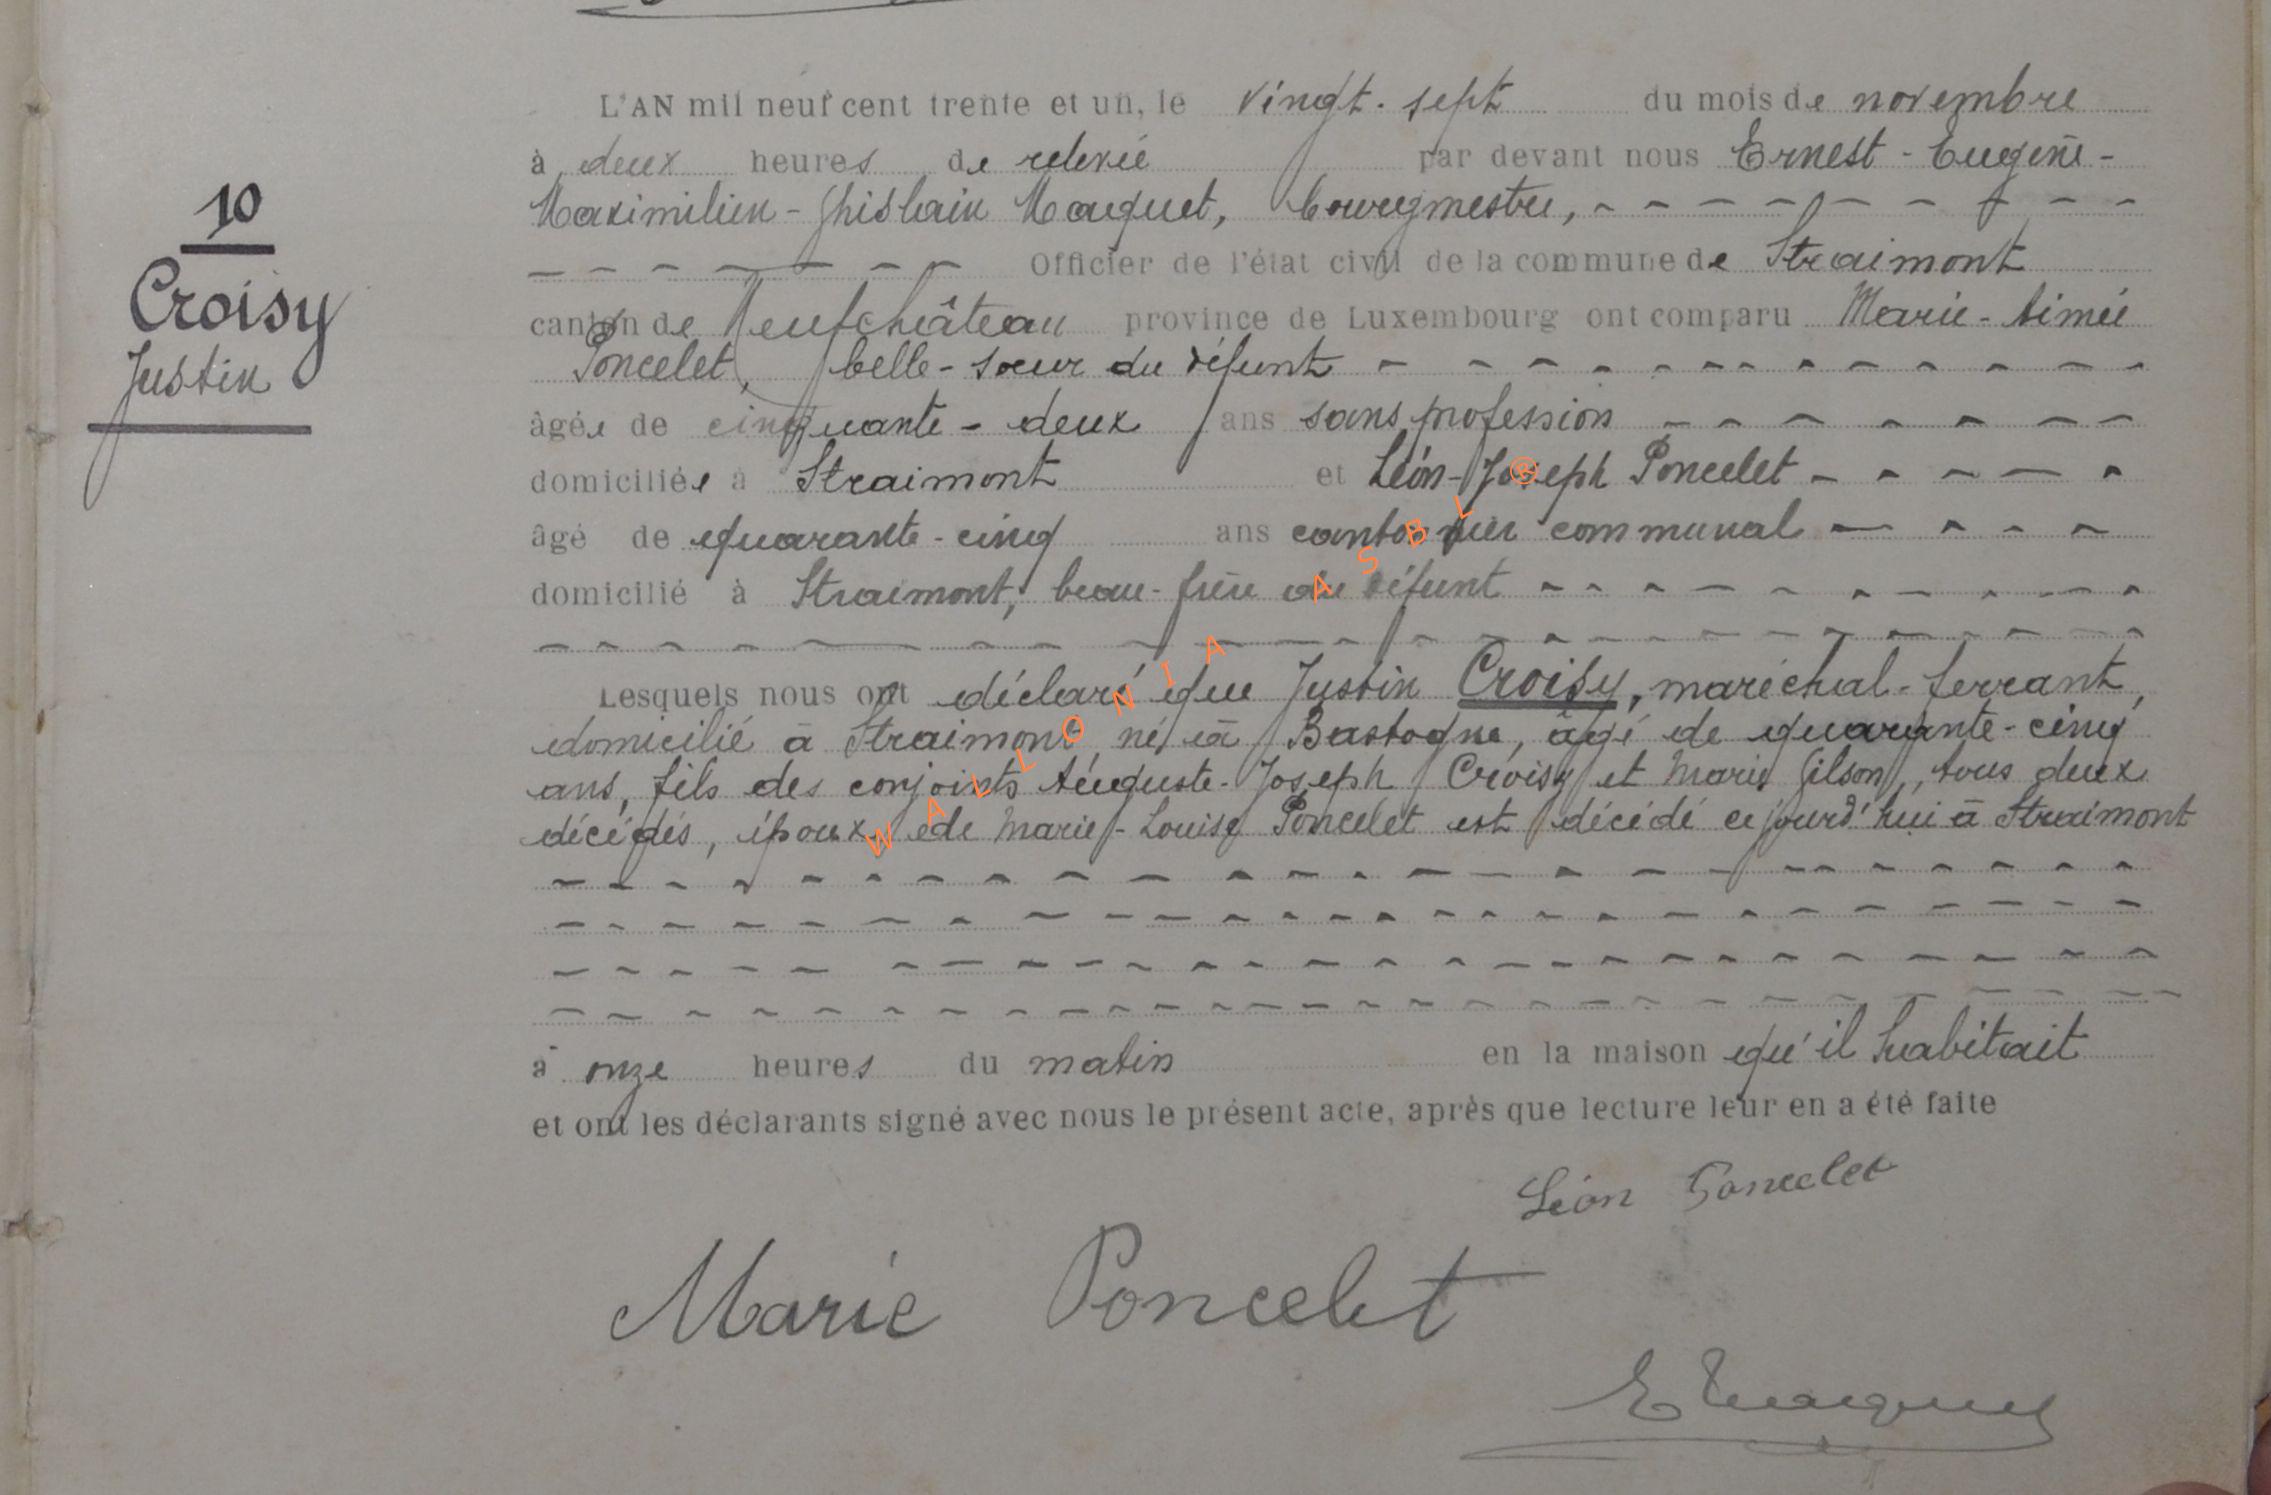 10
Croisy
Justin
L'AN mil neuf cent trente et un, le vingt-sept du mois de novembre
à deux heures de relevée par devant nous Ernest-Eugène-
Maximilien-Ghislain Maquet, bourgmestre,
Officier de l'état civil de la commune de Straimont
canton de Neufchâteau province de Luxembourg ont comparu Marie-Aimée
Poncelet, belle-sœur du défunt
âgée de cinquante-deux ans sans profession
domiciliée à Straimont et Léon-Joseph Poncelet
âgé de quarante-cinq ans cantonnier communal
domicilié à Straimont, beau-frère du défunt
Lesquels nous ont déclaré que Justin Croisy, maréchal-ferrant,
domicilié à Straimont né à Bastogne, âgé de quarante-cinq
ans, fils des conjoints Auguste-Joseph Croisy et Marie Gilson, tous deux
décédés, époux de Marie-Louise Poncelet est décédé cejourd'hui à Straimont
à onze heures du matin en la maison qu'il habitait
et ont les déclarants signé avec nous le présent acte, après que lecture leur en a été faite
Léon Poncelet
Marie Poncelet
E Maquet
WALLONIA ASBL ®